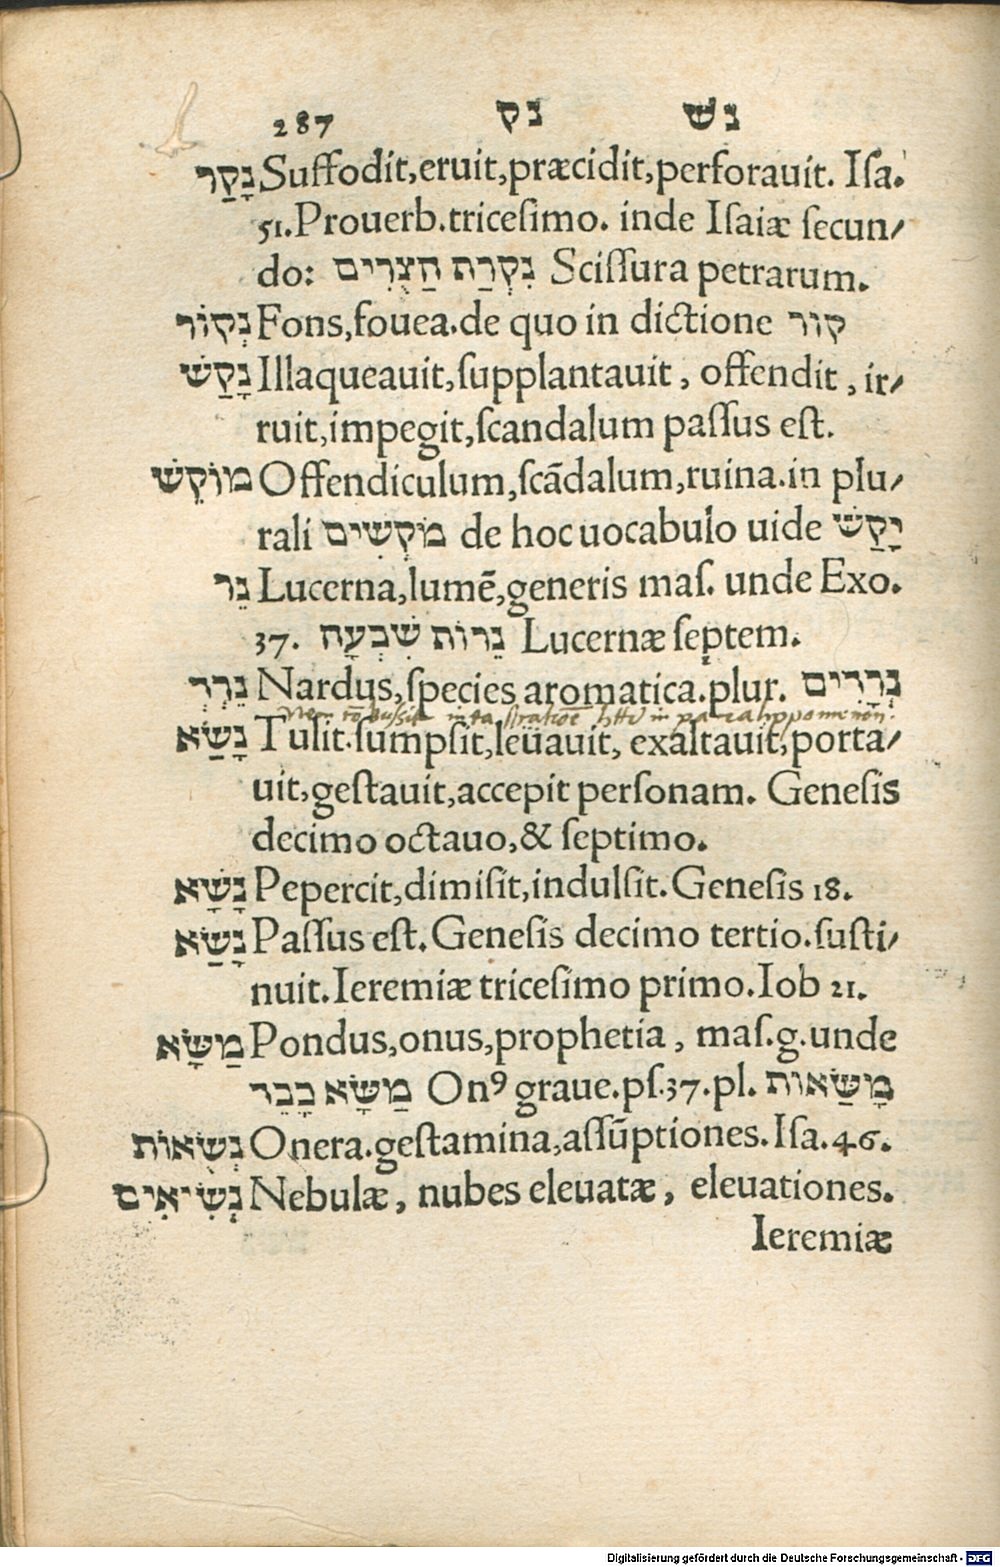 287 נק נש
נָקַר Suffodit,eruit,præcidit,perforauit. Isa.
51.Prouerb.tricesimo. inde Isaiæ secun/
do: נִקְרַת הַצֻרִים Scissura petrarum.
נְקוֹר Fons,fouea.de quo in dictione קור
נָקַשׁ Illaqueauit,supplantauit, offendit, ir/
ruit,impegit,scandalum passus est.
מוֹקֵשׁ Offendiculum,scādalum,ruina.in plu/
rali מֹקְשִׁים de hoc uocabulo uide יָקַשׁ
נֵר Lucerna,lumē,generis mas. unde Exo.
37. נֵרוֹת שִׁבְעָה Lucernæ septem.
נֵרְדְ Nardus,species aromatica.plur. נְרָדִים
נָשַׂא Tulit.sumpsit,leuauit, exaltauit,porta/
uit,gestauit,accepit personam. Genesis
decimo octauo,& septimo.
נָשָׂא Pepercit,dimisit,indulsit.Genesis 18.
נָשַׂא Passus est.Genesis decimo tertio.susti/
nuit.Ieremiæ tricesimo primo.Iob 21.
מַשָּׂא Pondus,onus,prophetia, mas.g.unde
מַשָּׂא כָבֵד Onꝰ graue.ps.37.pl. מַשַּׂאות
נְשֻׂאוֹת Onera.gestamina,assūptiones.Isa.46.
נְשִׂיאִים Nebulæ, nubes eleuatæ, eleuationes.
Ieremiæ
Digitalisierung gefördert durch die Deutsche Forschungsgemeinschaft - DFG